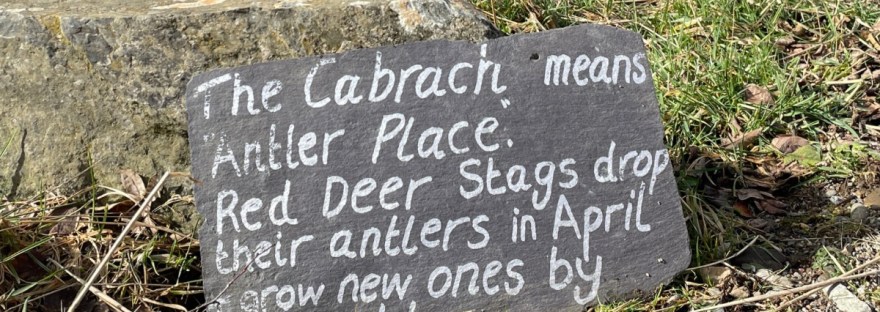 The Cabrach means
"Antler Place".
Red Deer Stags drop
their antlers in April
grow new ones by